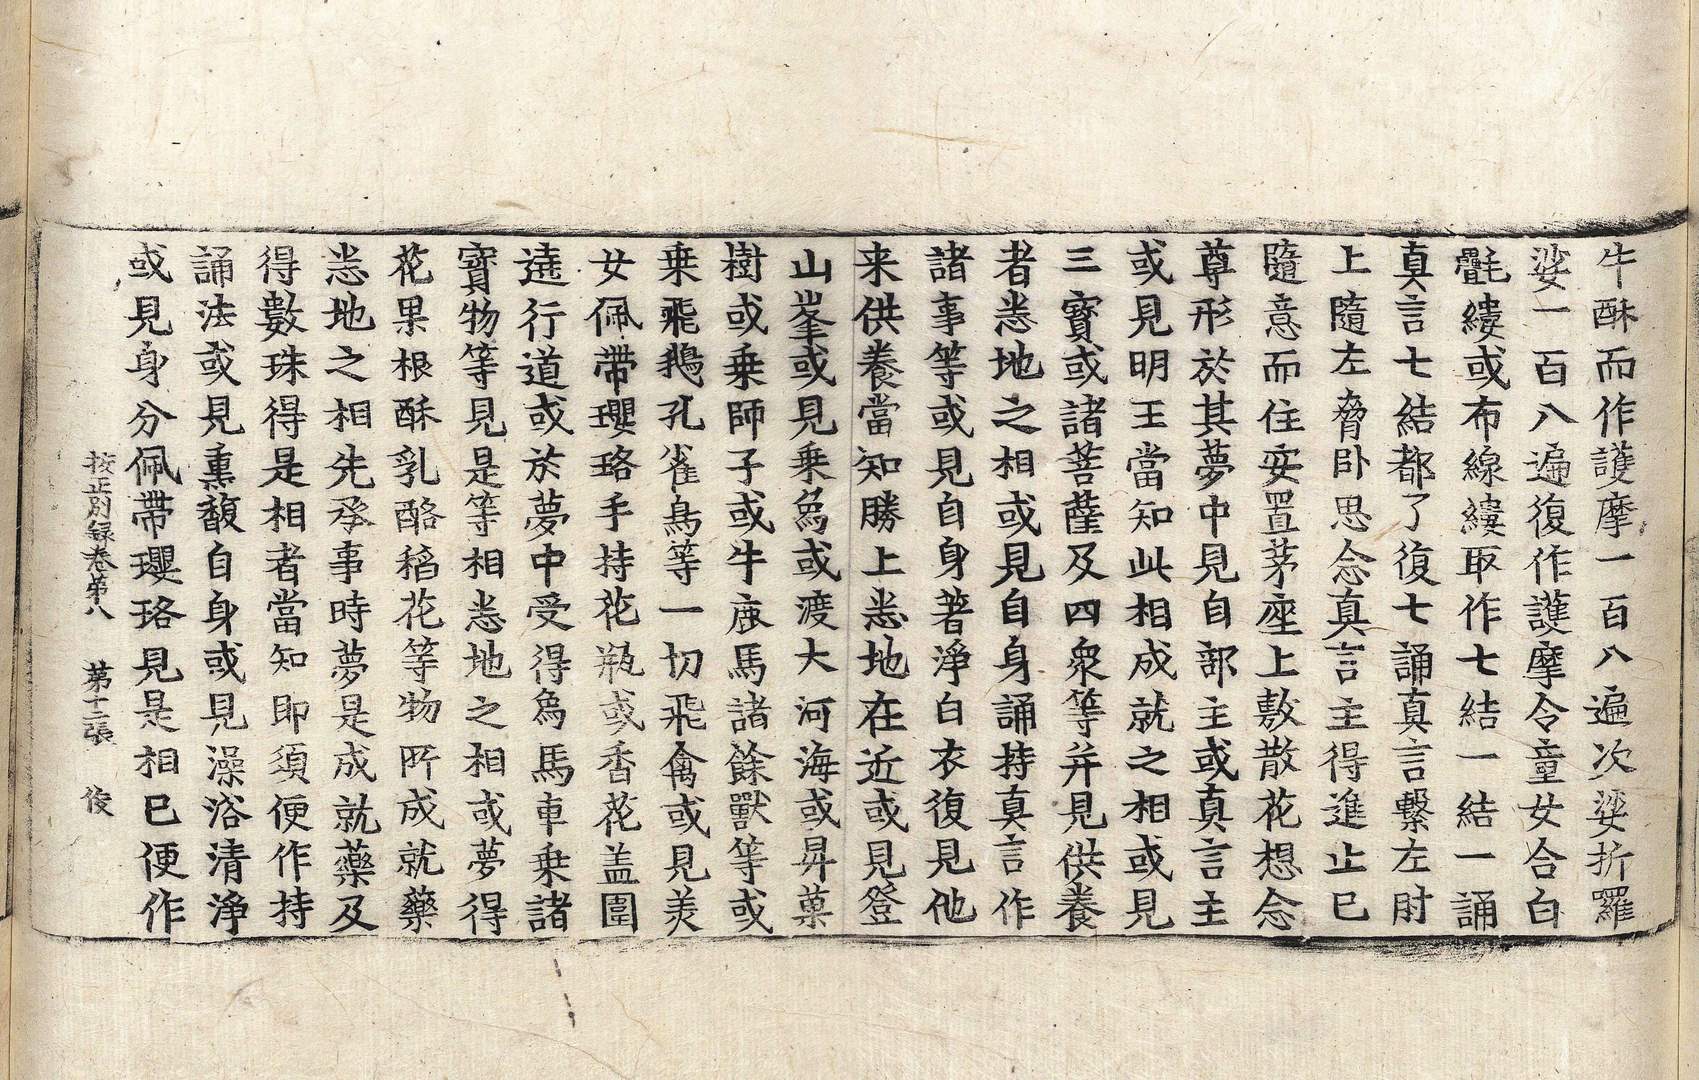 牛酥而作護摩一百八遍次娑折羅
娑一百八遍復作護摩令童女合白
㲲縷或布線縷取作七結一結一誦
真言七結都了復七誦真言繫左肘
上隨左脅卧思念真言主得進止已
隨意而住安置茅座上敷散花想念
尊形於其夢中見自部主或真言主
或見明王當知此相成就之相或見
三寳或諸菩薩及四衆等并見供養
者悉地之相或見自身誦持真言作
諸事等或見自身著淨白衣復見他
来供養當知勝上悉地在近或見登
山峯或見乗烏或渡大河海或昇菓
樹或乗師子或牛鹿馬諸餘獸等或
乗飛鵝孔雀鳥等一切飛禽或見美
女佩帶瓔珞手持花瓶或香花盖圍
遶行道或於夢中受得烏馬車乗諸
寳物等見是等相悉地之相或夢得
花果根酥乳酪稻花等物所成就藥
悉地之相先承事時夢是成就藥及
得數珠得是相者當知即須便作持
誦法或見熏馥自身或見澡浴清淨
或見身分佩帶瓔珞見是相已便作
挍正別録卷第八 第十二張 俊